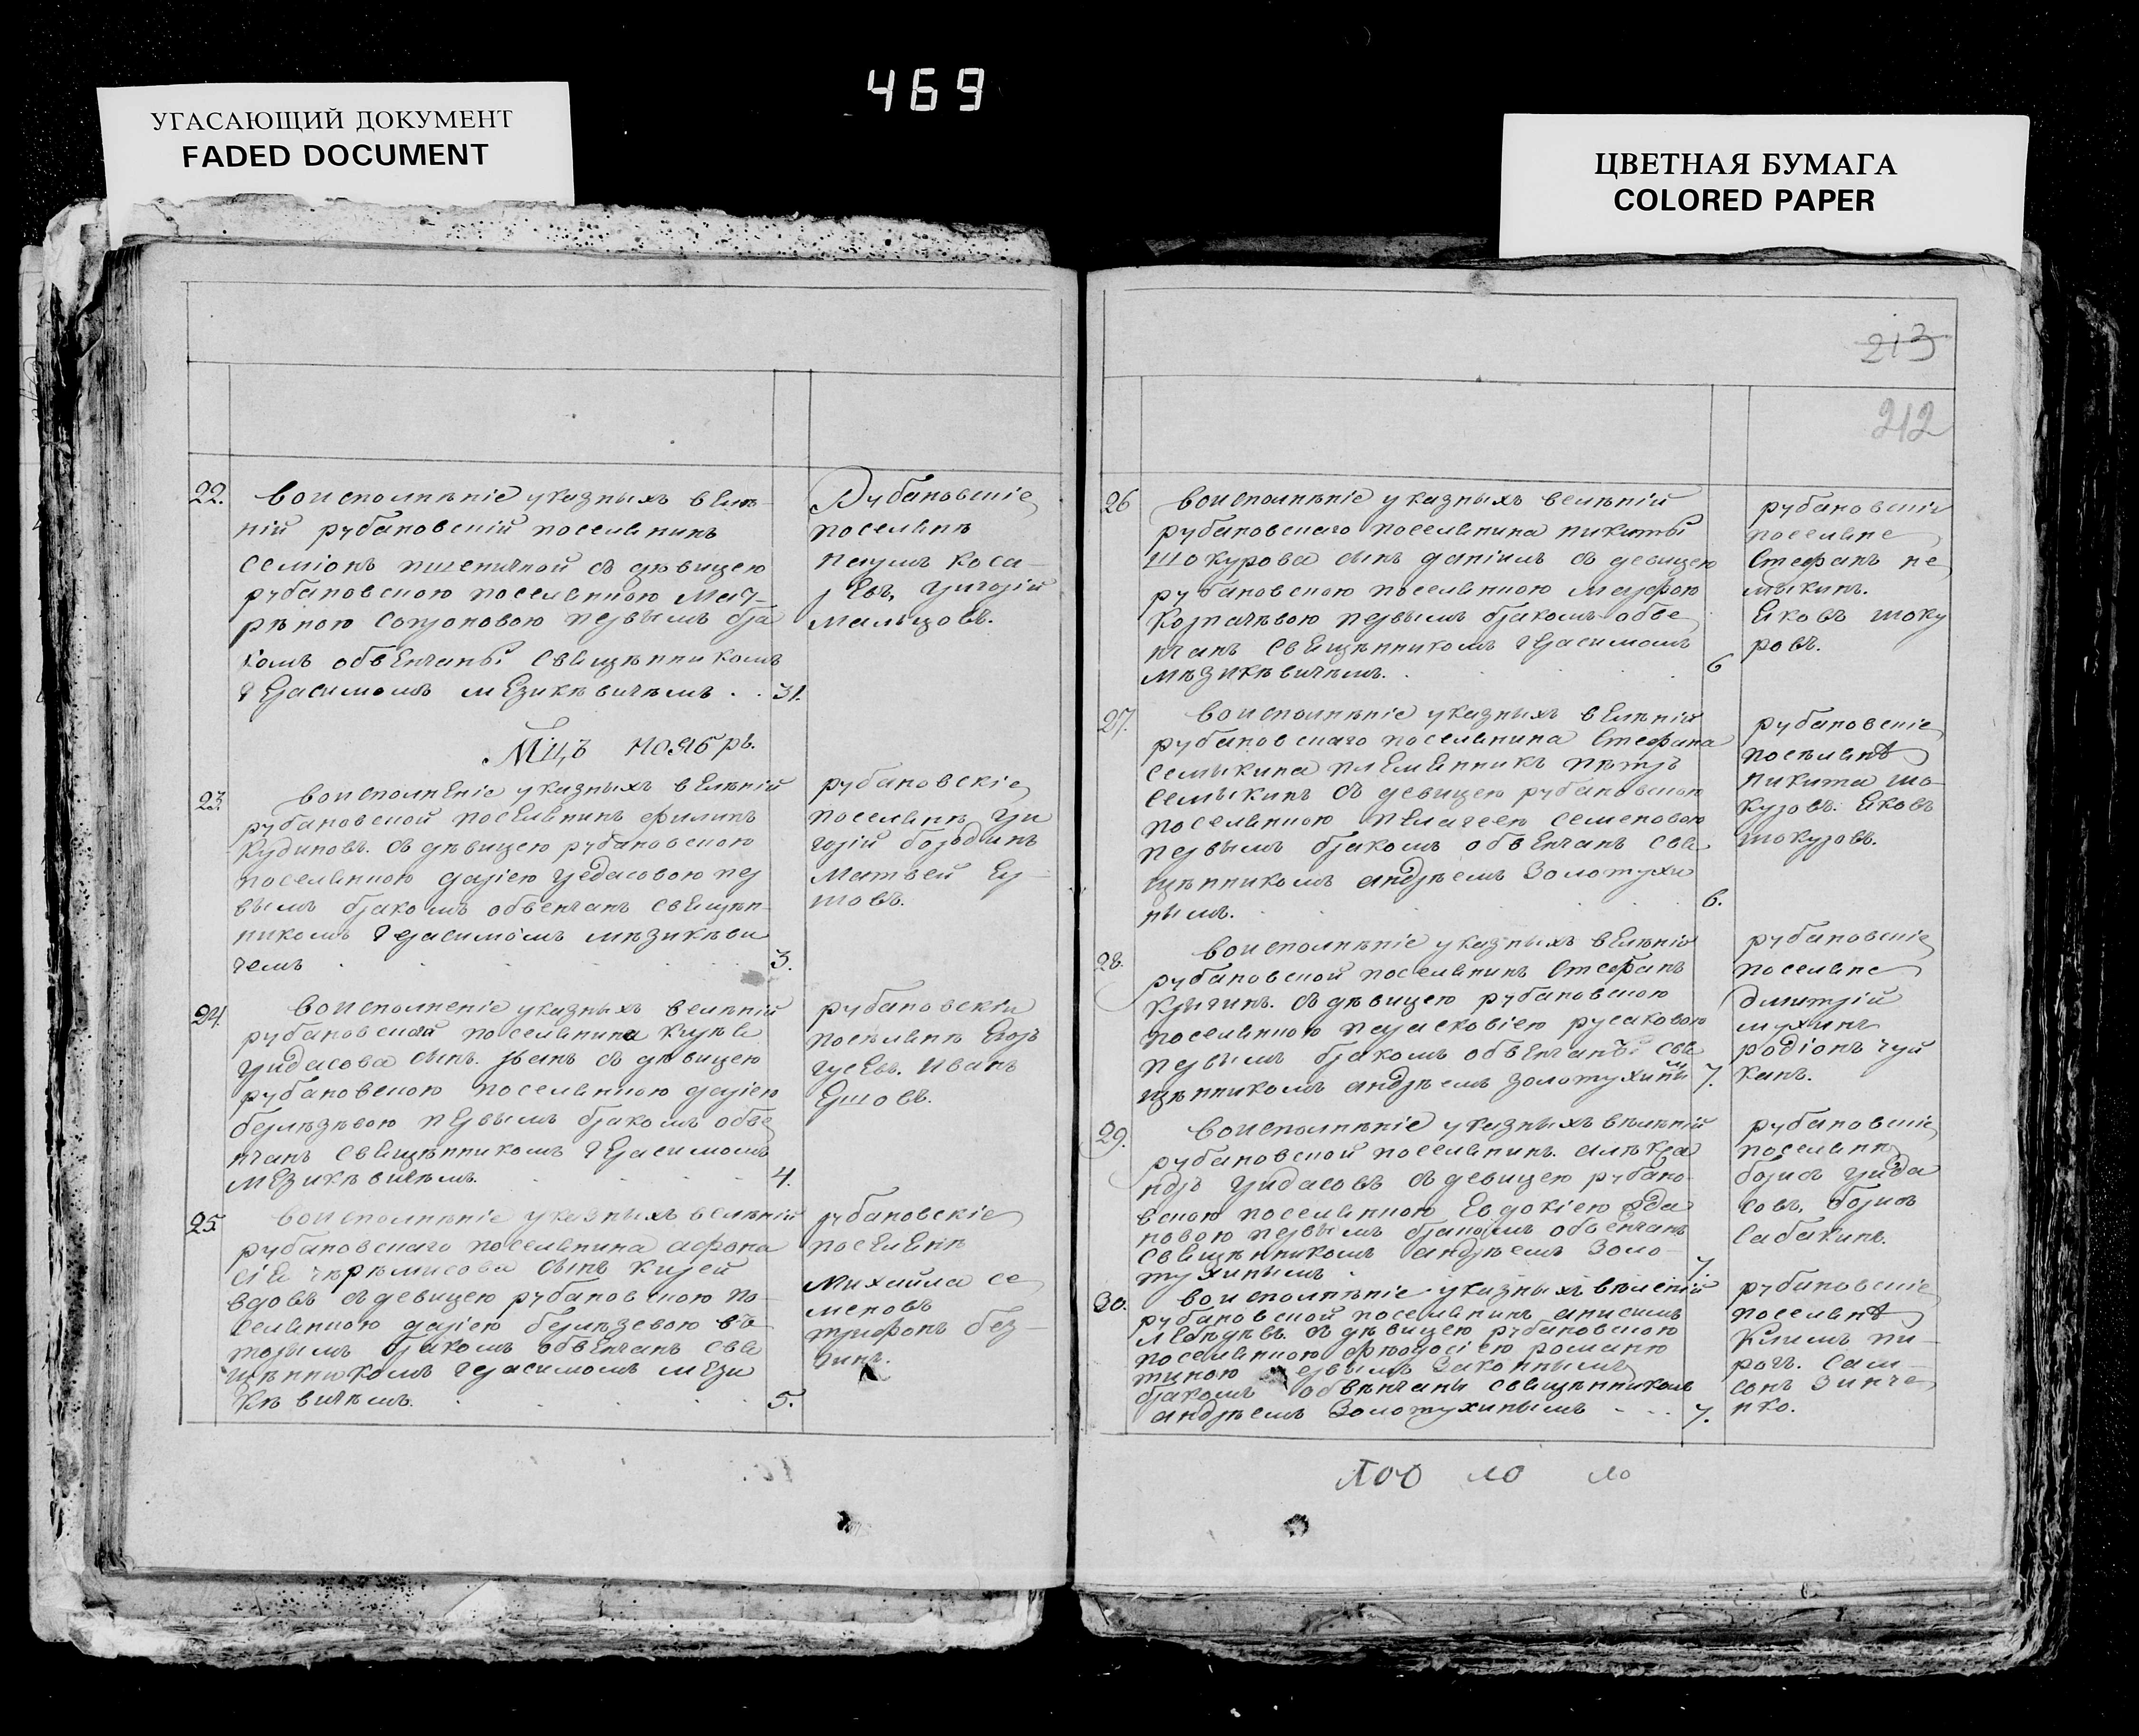 469
УГАСАЮЩИЙ ДОКУМЕНТ
FADED DOCUMENT
ЦВЕТНАЯ БУМАГА
COLORED PAPER
22. Воисполнѣніе указныхъ велѣ-
ній рубановскій поселянинъ
Семіонъ пшеничной съ дѣвицею
рубановскою поселянною Мат-
рѣною первымъ бра
комъ обвенчаны Священникомъ
Герасимомъ Мезикѣвичѣмъ . . 31.
Рубановскіе
поселянѣ
Наумъ Коса-
ревъ, Григорій
Мальцовъ.
Мцъ Ноябрь.
23. Воисполненіе указныхъ велѣній
рубановской поселянинъ Филипъ
Кудиновъ. съ дѣвицею рубановскою
поселянною даріею гредасовою пер
вымъ бракомъ обвенчанъ Священ-
никомъ Герасимомъ мѣзикѣви
чемъ . 3.
рубановскіе
поселянѣ Гри
горій бородинъ
Матвей Ер-
шовъ.
24. Воисполненіе указныхъ велѣній
рубановская поселянина
Гридасова сынъ. Иванъ съ дѣвицею
рубановскою поселянною даріею
бермѣзѣвою первымъ бракомъ обве
нчанъ Священникомъ Герасимомъ
Мезикѣвичѣмъ. 4.
рубановскіи
посѣлянѣ Егоръ
гусевъ. Иванъ
Ершовъ.
25. Воисполнѣніе указныхъ велѣній
рубановскаго поселянина афона
сія чѣрѣмисова сынъ Кирей
вдовъ съ девицею рубановскою по-
селянною даріею бермѣзевою вто
торымъ бракомъ обвенчанъ Свя
щѣнникомъ Герасимомъ мези
Кѣвичѣмъ. 5.
рубановскіе
поселянѣ
Михайла се
меновъ
трифонъ без-
213
212
26 Воисполнѣніе указныхъ велѣній
рубановскаго поселянина никиты
Шокурова сынъ даніилъ съ девицею
рубановскою поселянною марфою
Корпачѣвою первымъ бракомъ обве
нчанъ Священникомъ Герасимомъ
Мѣзикѣвичѣмъ. 6
рубановскіи
поселяне
Стефанъ не
мыкинъ.
Яковъ шоку
ровъ.
27. Воисполнѣніе указныхъ велѣній
рубановскаго поселянина Стефана
Семыкина племенникъ пѣтръ
Семыкинъ съ девицею рубановскою
поселянною пелагеею семеновою
первымъ бракомъ обвенчанъ свя
щѣнникомъ андрѣемъ Золотухи
нымъ. 6.
рубановскіе
посѣлянѣ
никита шо-
куровъ. Яковъ
шокуровъ.
28. Воисполнѣніе указныхъ велѣній
рубановской поселянинъ Стефанъ
съ дѣвицею рубановскою
поселянною параскевіею русаковою
первымъ бракомъ обвенчанъ свя
щѣнникомъ андрѣемъ золотухинымъ 7.
рубановскіе
поселяне
дмитрій
мухинъ
родіонъ чуй
кинъ.
29. Воисполнѣніе указныхъ вѣлѣній
рубановской поселянинъ. алѣкса
ндръ Гридасовъ съ девицею рубано-
вскою поселянною Евдокіею жда
новою первымъ бракомъ обвенчанъ
Священникомъ андрѣемъ Золо-
тухинымъ . 7.
рубановскіе
поселянѣ
борисъ грида
совъ. борисъ
Сабакинъ.
30. Воисполнѣніе указныхъ вѣленій
рубановской поселянинъ анисимъ
лебѣдѣвъ. съ дѣвицею рубановскою
поселянною романю
тиною первымъ Законнымъ
бракомъ обвѣнчаны священникомъ
андрѣемъ Золотухинымъ . . . 7.
рубановскіе
поселянѣ
Климъ пи-
рогъ. Сам-
сонъ Зинче
нко.